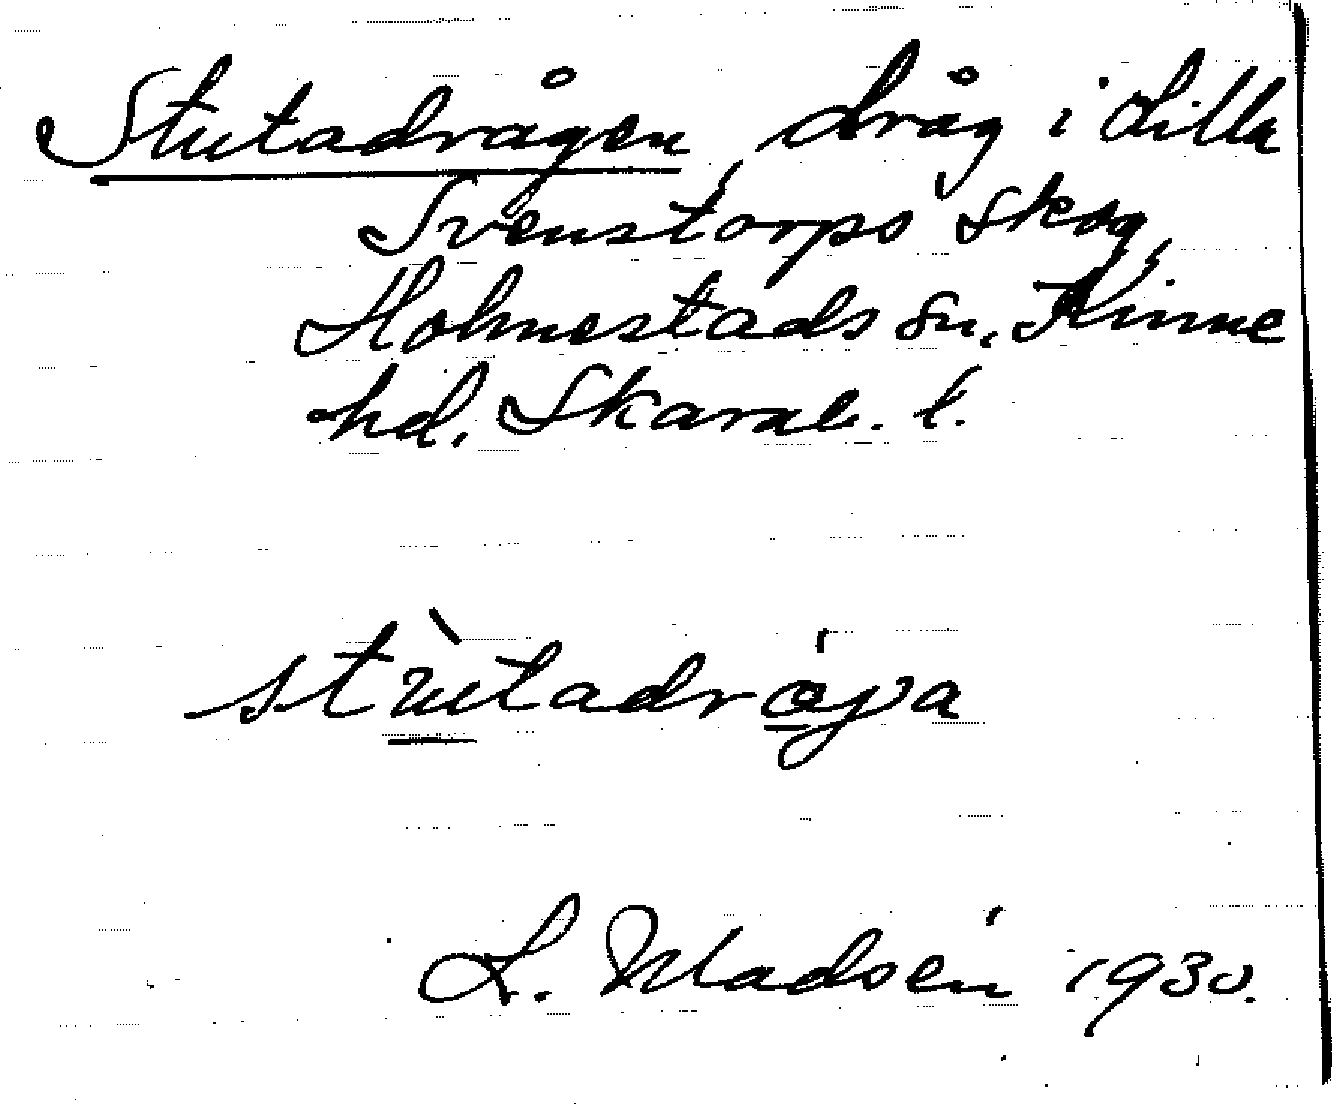 Stutadrågen, dråg i Lilla
Svenstorps skog,
Holmestads sn. Kinne
hd. Skarab. l.
stùtadrǫ́ja
L. Madsén 1930.